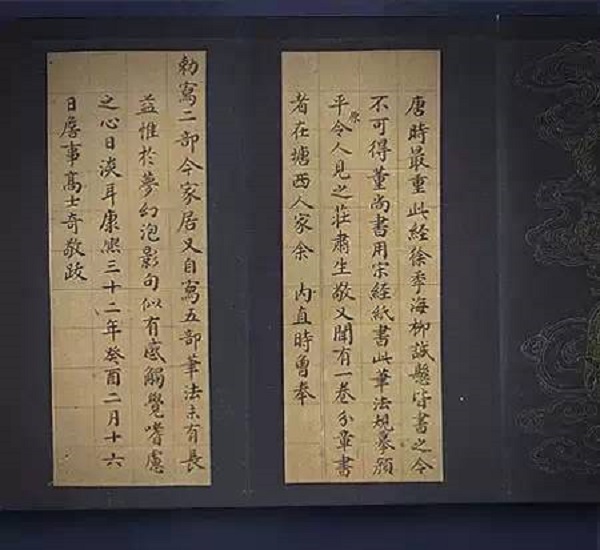 唐時最重此經徐季海柳誠懸皆書之今
不可得董尚書用宋經紙書此筆法規摹顏
平原令人見之莊肅生敬又聞有一卷分章書
者在塘西人家余 內直時曾奉
勅寫二部今家居又自寫五部筆法未有長
益惟於夢幻泡影句似有感觸覺嗜慮
之心日淡耳康熙三十二年癸酉二月十六
日詹事高士奇敬跋